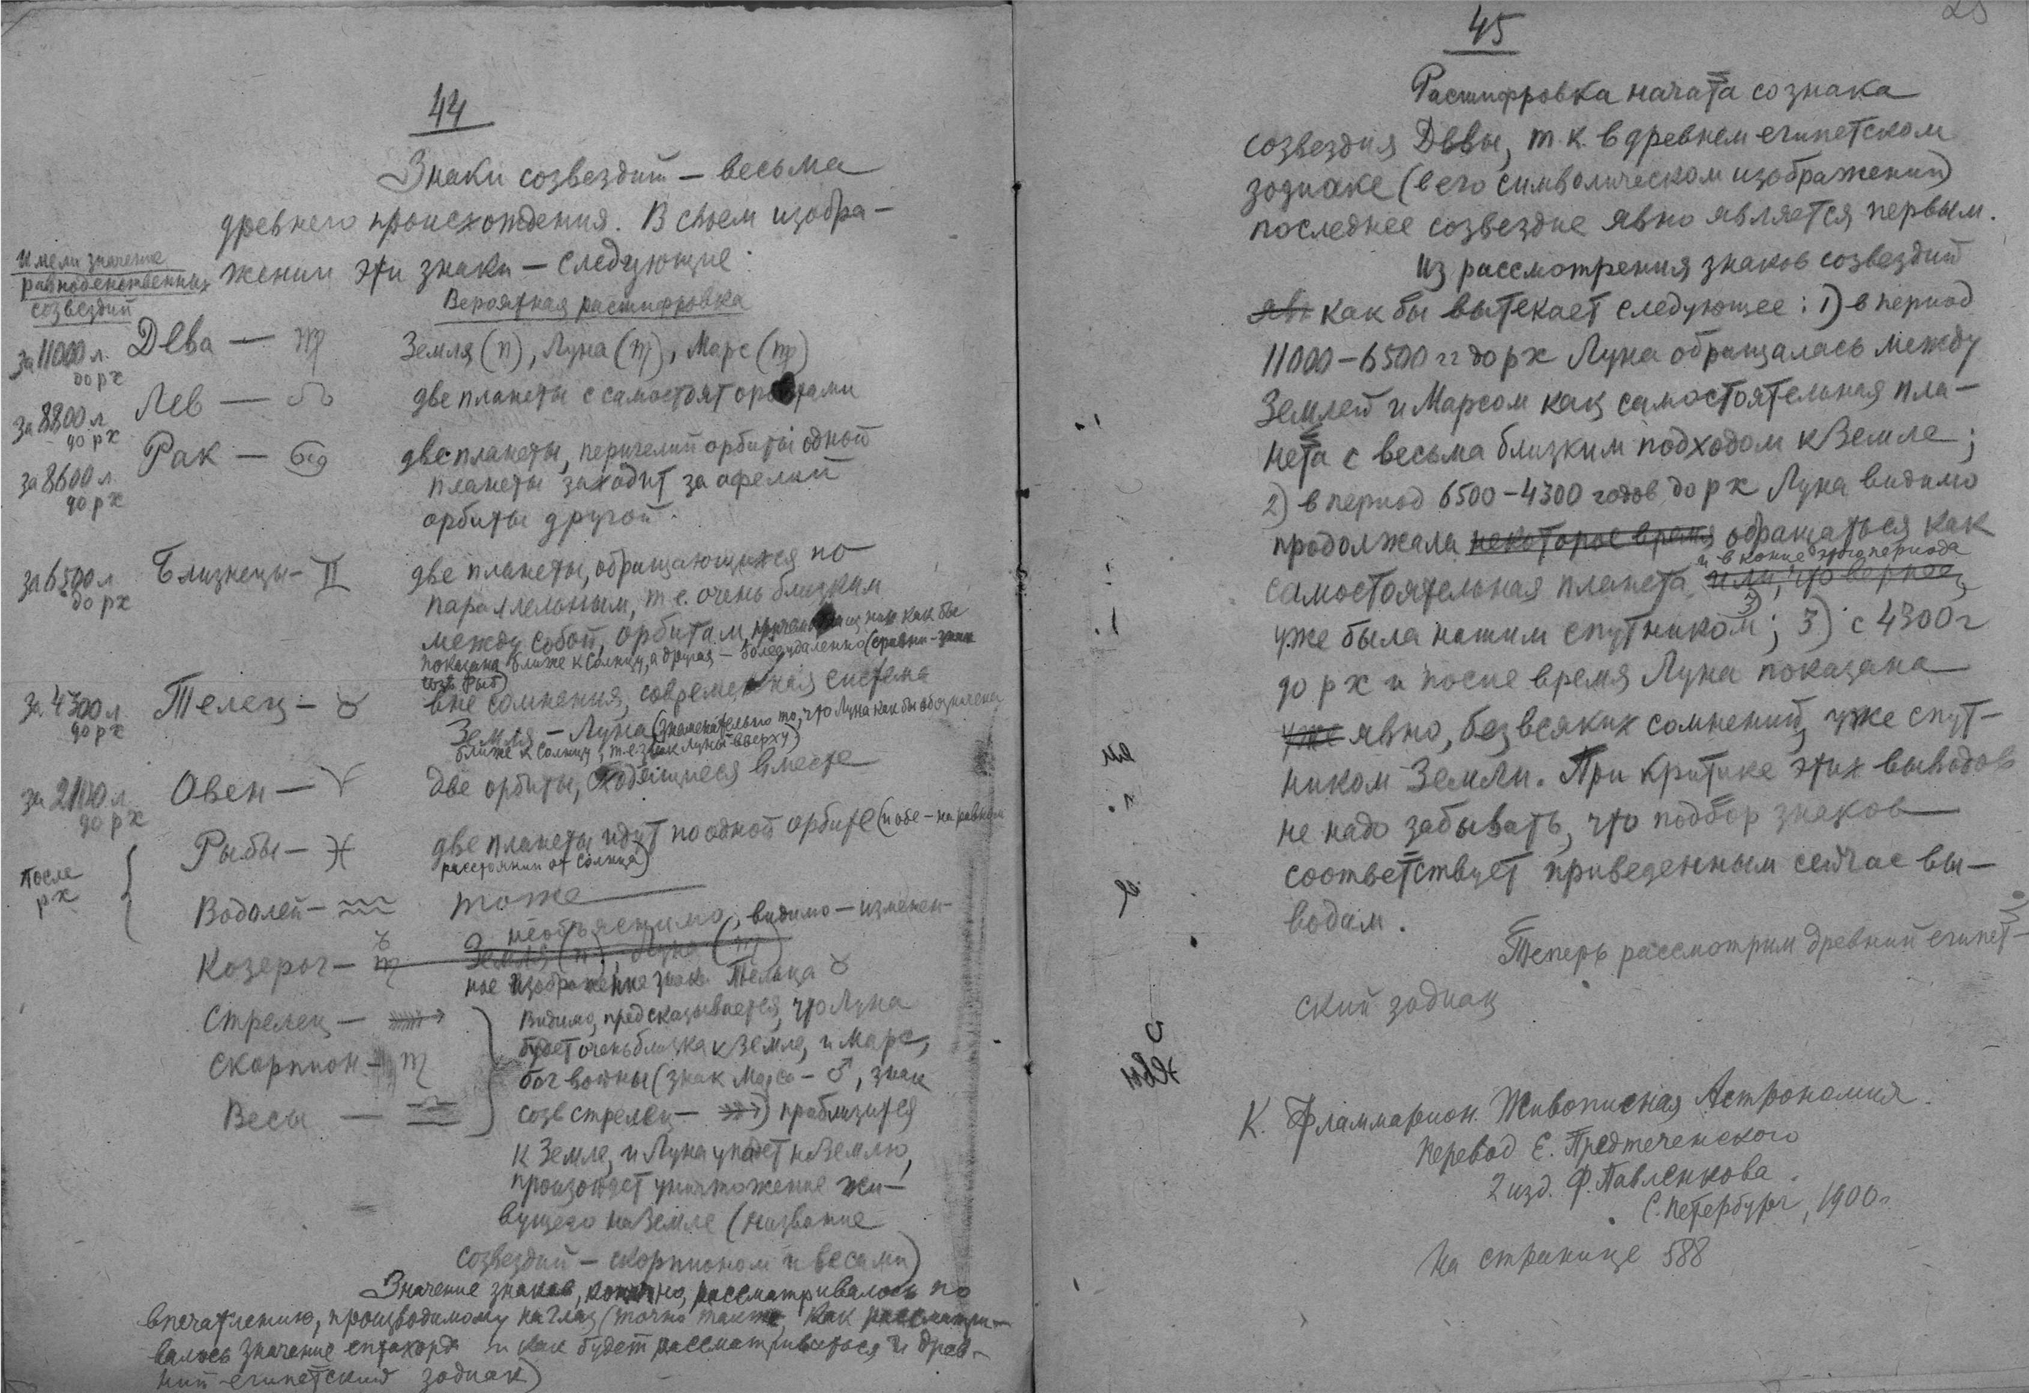 44
Знаки созвездий — весьма
древнего происхождения. В своем изобра-
жении эти знаки — следующие:
Имели значение
равноденственных
созвездий
Вероятная расшифровка
за 11000 л. до рх Дева — ♍ Земля (п), Луна (m), Марс (♍)
за 8800 л до рх Лев — ♌ две планеты с самостоят орбитами
за 8600 л. до рх Рак — ♋ две планеты, перигелий орбиты одной
планеты заходит за афелий
орбиты другой.
за 6500 л до рх Близнецы — ♊ две планеты, обращающихся по
параллельным, т.е. очень близким
между собой, орбитам, как бы
показана ближе к Солнцу, а другая — более удаленно (сравни — знак
созв Рыб)
за 4300 л до рх Телец — ♉ вне сомнения, современная система
Земля — Луна (знаменательно то, что Луна как бы обозначена
ближе к Солнцу, т.е. знак Луны вверху)
за 2100 л до рх Овен — ♈ две орбиты, сходящиеся вместе
после рх Рыбы — ♓ две планеты идут по одной орбите (и обе — на равном
расстоянии от Солнца)
Водолей — ♒ тоже
необъяснимо, видимо — изменен-
Козерог — ♉ m Земля (п), Луна (m)
ное изображение знака Тельца ♉
Стрелец — Видимо, предсказывается, что Луна
будет очень близка к Земле, и Марс,
Скорпион — ♏ бог войны (знак Марса — ♂, знак
Весы — ♎ созв стрелец — ) приблизится
к Земле, и Луна упадет на Землю,
произойдет уничтожение жи-
вущего на Земле (название
созвездий — скорпионом и весами)
Значение знаков, конечно, рассматривалось по
впечатлению, производимому на глаз (точно также, как рассматри-
валось значение и как будет рассматриваться и древ-
ний египетский зодиак)
45
Расшифровка начата со знака
созвездия Девы, т.к. в древнем египетском
зодиаке (в его символическом изображении)
последнее созвездие явно является первым.
Из рассмотрения знаков созвездий
явн как бы вытекает следующее: 1) в период
11000–6500 гг до рх Луна обращалась между
Землей и Марсом как самостоятельная пла-
нета с весьма близким подходом к Земле;
2) в период 6500–4300 годов до рх Луна видимо
продолжала некоторое время обращаться как
и в конце этого периода
самостоятельная планета, или, что вернее,
уже была нашим спутником; 3) с 4300 г
до рх и после время Луна показана
уже явно, без всяких сомнений, уже спут-
ником Земли. При критике этих выводов
не надо забывать, что подбор знаков
соответствует приведенным сейчас вы-
водам.
Теперь рассмотрим древний египет-
ский зодиак
К. Фламмарион. Живописная Астрономия.
Перевод Е. Предтеченского
2 изд. Ф. Павленкова.
С. Петербург, 1900 г
На странице 588